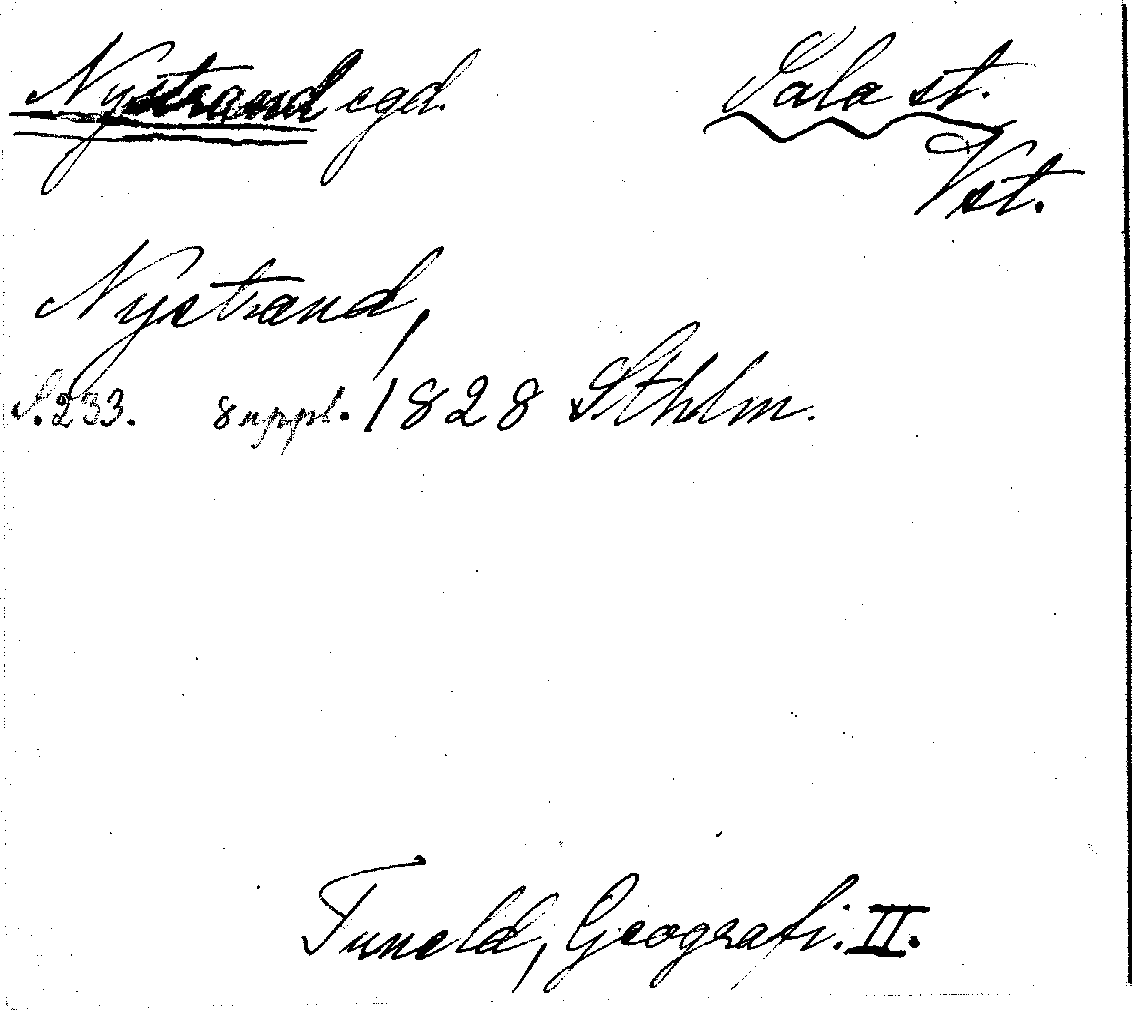 Nystrand egd. Sala st.
Vst.
Nystrand,
S. 233. suppl. 1828 Sthlm.
Tuneld, Geografi. II.